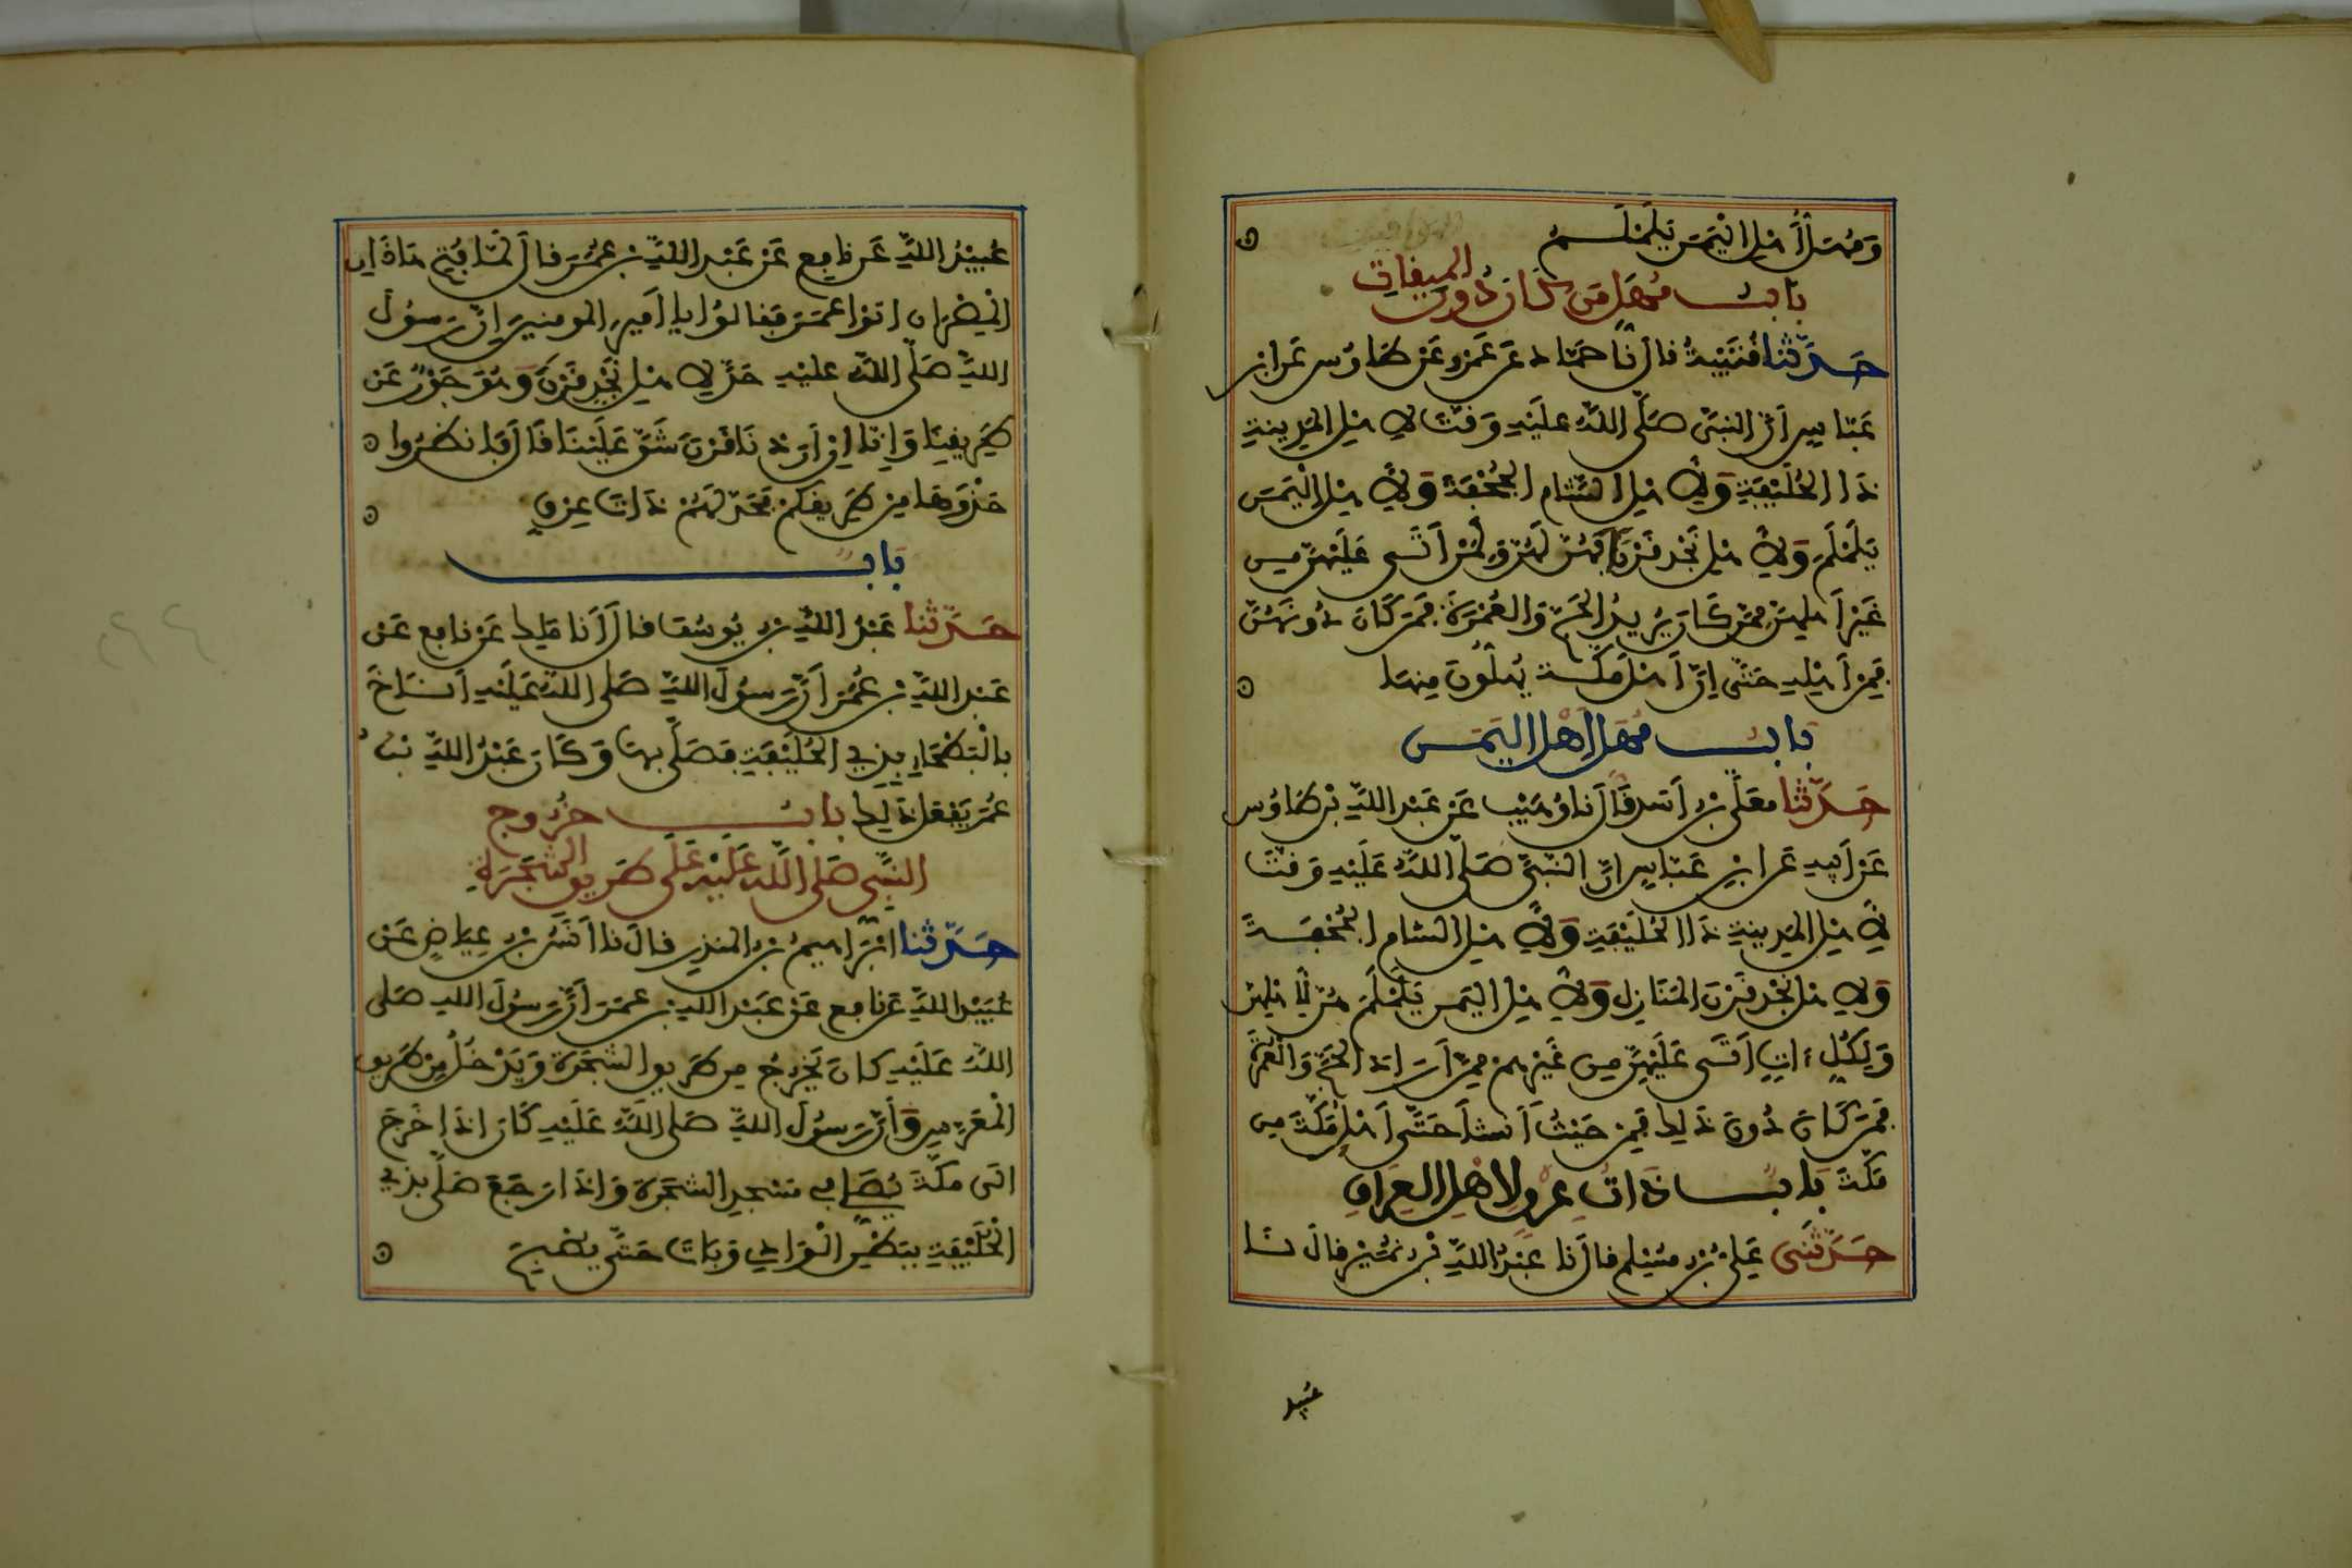 وَمُهَلُّ أَهْلِ الْيَمَنِ يَلَمْلَمُ
بَابُ مُهَلِّ مَن كَانَ دُونَ الميفاتِ
حَدَّثَنَا قُتَيْبَةُ قال نَا حَمَّادٌ عَن عَمْرٍو عَنْ طَاوُسٍ عَنِ ابْنِ
عَبَّاسٍ أَنَّ النبيَّ صَلَّى اللهُ عليْهِ وَقَّتَ لِأَهْلِ المَدِينةِ
ذَا الْحُلَيْفَةِ وَلِأَهْلِ الشَّامِ الْجُحْفَةَ وَلِأَهْلِ الْيَمَنِ
يَلَمْلَمَ وَلِأَهْلِ نَجْدٍ قَرْنًا فَهُنَّ لَهُنَّ وَلِمَنْ أَتَى عَلَيْهِنَّ مِن
غَيْرِ أَهْلِهِنَّ مِمَّن كَانَ يُرِيدُ الحَجَّ وَالعُمْرَةَ فَمَن كَانَ دُونَهُنَّ
فَمِنْ أَهْلِهِ حَتَّى إِنَّ أَهْلَ مَكَّةَ يُهِلُّونَ مِنهَا
بَابُ مُهَلِّ أَهْلِ اليَمَنِ
حَدَّثَنَا مُعَلَّى بْنُ أَسَدٍ قَالَ نَا وُهَيْبٌ عَنْ عَبْدِ اللهِ بْنِ طَاوُسٍ
عَنْ أَبِيهِ عَنِ ابْنِ عَبَّاسٍ أنَّ النَّبِيَّ صَلَّى اللهُ عَلَيْهِ وَقَّتَ
لِأَهْلِ المَدِينةِ ذَا الْحُلَيْفَةِ وَلِأَهْلِ الشام الجُحْفَةَ
وَلِأَهْلِ نَجْدٍ قَرْنَ المَنَازِلِ وَلِأَهْلِ اليَمَنِ يَلَمْلَمَ هُنَّ لِأَهْلِهِنَّ
وَلِكُلِّ ءَاتٍ أَتَى عَلَيْهِنَّ مِن غَيْرِهِمْ مِمَّنْ أَرَادَ الحَجَّ وَالْعُمْرَةَ
فَمَن كَانَ دُونَ ذَلِكَ فَمِنْ حَيْثُ أَنشَأَ حَتَّى أَهْلُ مَكَّةَ مِن
مَكَّةَ بَابٌ ذَاتُ عِرْقٍ لِأَهْلِ العِرَاقِ
حَدَّثَنِي عَلِيُّ بْنُ مُسْلِمٍ قال نَا عَبْدُ اللهِ بْنُ نُمَيْرٍ قال نَا
عُبَيد
عُبَيْدُ اللهِ عَن نافِعٍ عَنْ عَبْدِ اللهِ بْنِ عُمَرَ قال لَمَّا فُتِحَ هَاذَانِ
الْمِصْرَانِ اتوْا عمَرَ فَقَالُوا يا أَمِيرَ المومنِينَ إِنَّ رَسُولَ
اللهِ صَلَّى اللهُ عليْهِ حَدَّ لِأَهْلِ نَجْدٍ قَرْنًا وَهُوَ جَوْرٌ عَن
طَرِيقِنَا وَإِنَّا إِنْ أَرَدْنَا قَرْنَ شَقَّ عَلَيْنَا قَالَ فَانظُرُوا
حَذْوَهَا مِن طَرِيقِكُمْ فَحَدَّ لَهُمْ ذَاتَ عِرْقٍ
بَابُ
حَدَّثَنَا عَبْدُ اللهِ بْنُ يُوسُفَ قال أَنَا مَلِك عَنْ نافِعٍ عَنْ
عَبْدِ اللهِ بْنِ عُمَرَ أَنَّ رَسُولَ اللهِ صَلى اللهُ عَلَيْهِ أَنَاخَ
بِالْبَطْحَاءِ بِذِي الحُلَيْفَةِ فَصَلَّى بِهَا وَكَانَ عَبْدُ اللهِ بْنُ
عُمَرَ يَفْعَل ذَلِكَ بَابُ خُرُوجِ
النَّبِي صَلى اللهُ عَلَيْهِ عَلَى طَرِيقِ الشَّجَرَةِ
حَدَّثَنَا ابْرَاهِيمُ بْنُ المنذِرِ قال نَا أَنَسُ بْنُ عِيَاضٍ عَن
عُبَيْدِ اللهِ عَن نافِعٍ عَنْ عَبْدِ اللهِ بْنِ عمَرَ أَنَّ رَسُولَ اللهِ صَلى
اللهُ عَلَيْهِ كَانَ يَخْرُجُ مِن طَرِيقِ الشجَرَةِ وَيَدْخُلُ مِنْ طَرِيقِ
الْمُعَرَّسِ وَأَنَّ رَسُولَ اللهِ صَلى اللهُ عَلَيْهِ كَانَ اذَا خَرَجَ
الَى مَكَّةَ يُصَلِّي في مَسْجِدِ الشجَرَةِ وَاذَا رَجَعَ صَلَّى بِذِي
الْحُلَيْفَةِ بِبَطْنِ الْوَادِي وَبَاتَ حَتَّى يُصْبِحَ